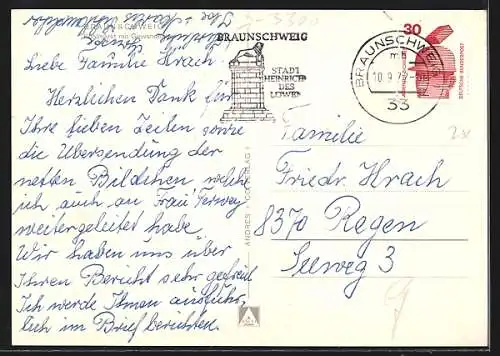 BRAUNSCHWEIG
Liebe Familie Hrach.
Herzlichen Dank für
Ihre lieben Zeilen sowie
die Übersendung der
netten Bildchen welche
ich auch an Frau Terwey
weitergeleitet habe.
Wir haben uns über
Ihren Bericht sehr gefreut
Ich werde Ihnen ausführ-
lich im Brief berichten.
BRAUNSCHWEIG
STADT
HEINRICHS
DES
LÖWEN
BRAUNSCHWEIG
33
30
DEUTSCHE BUNDESPOST
Familie
Friedr. Hrach
8370 Regen
Seeweg 3